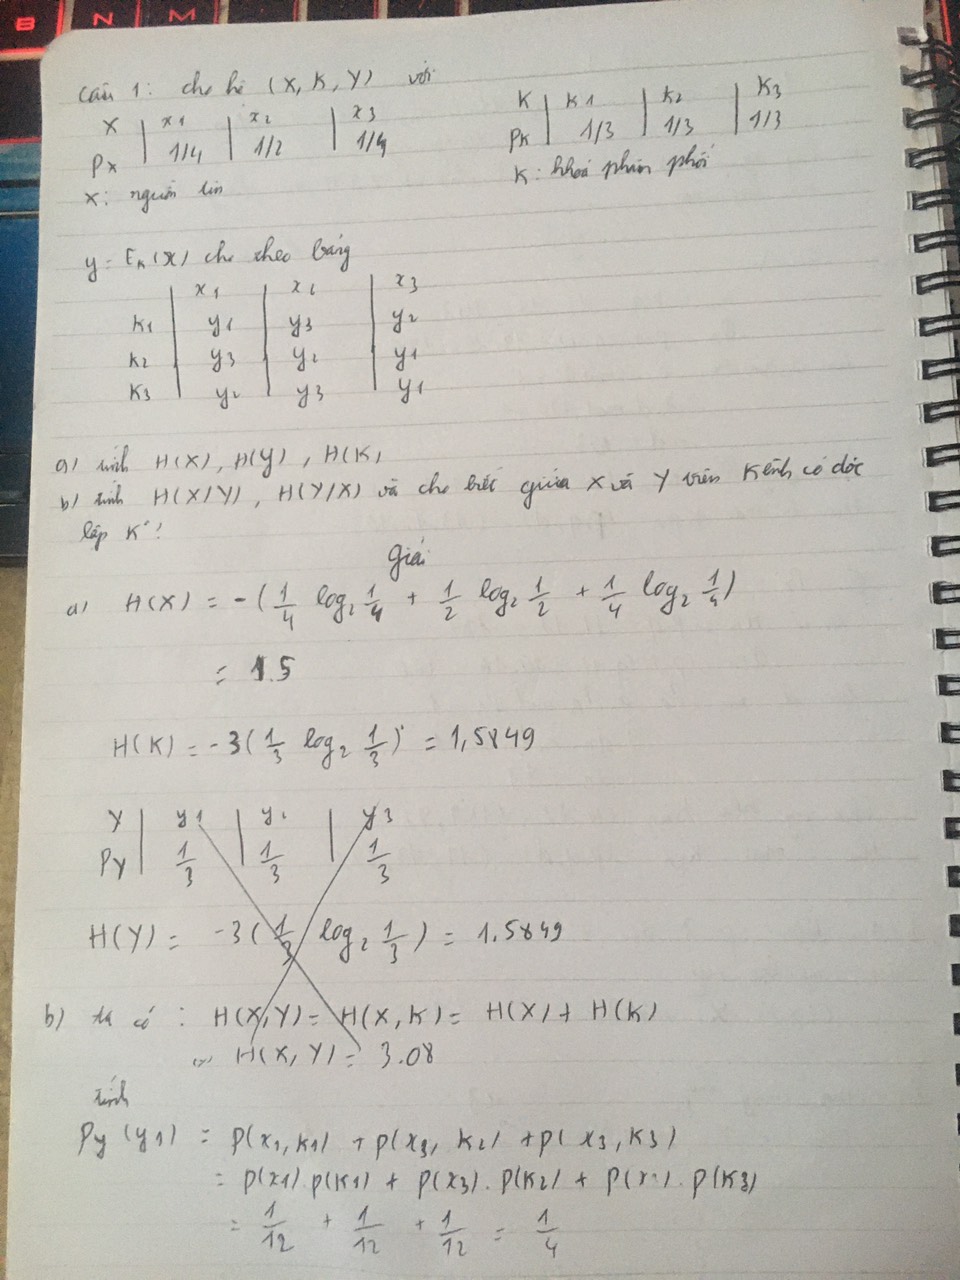 B N M
câu 1: cho hệ (X, K, Y) với
X | x1 | x2 | x3
Px | 1/4 | 1/2 | 1/4
X: nguồn tin
K | k1 | k2 | k3
PK | 1/3 | 1/3 | 1/3
K: khoá phân phối
y = EK(x) cho theo bảng
| x1 | x2 | x3
K1 | y1 | y3 | y2
K2 | y3 | y2 | y1
K3 | y2 | y3 | y1
a) tính H(X), H(Y), H(K)
b) tính H(X/Y), H(Y/X) và cho biết giữa X và Y trên kênh có độc
lập K°!
Giải
a) H(X) = -(1/4 log2 1/4 + 1/2 log2 1/2 + 1/4 log2 1/4)
= 1.5
H(K) = -3(1/3 log2 1/3) = 1,5849
Y | y1 | y2 | y3
Py | 1/3 | 1/3 | 1/3
H(Y) = -3(1/3 log2 1/3) = 1.5849
b) ta có: H(X,Y) = H(X,K) = H(X) + H(K)
H(X,Y) = 3.08
tính
Py(y1) = P(x1,k1) + P(x3,k2) + P(x3,K3)
= P(x1).P(K1) + P(x3).P(K2) + P(x3).P(K3)
= 1/12 + 1/12 + 1/12 = 1/4